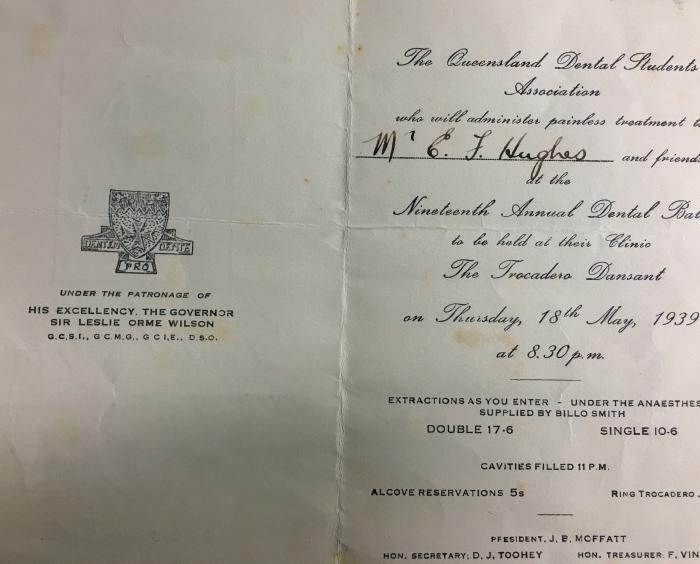 DENTEM DENTE
PRO
UNDER THE PATRONAGE OF
HIS EXCELLENCY, THE GOVERNOR
SIR LESLIE ORME WILSON
G.C.S.I., G.C.M.G., G.C.I.E., D.S.O.
The Queensland Dental Students
Association
who will administer painless treatment t
Mr E. F. Hughes and friend
at the
Nineteenth Annual Dental Ba
to be held at their Clinic
The Trocadero Dansant
on Thursday, 18th May, 1939
at 8.30 p.m.
EXTRACTIONS AS YOU ENTER - UNDER THE ANAESTHES
SUPPLIED BY BILLO SMITH
DOUBLE 17-6 SINGLE 10-6
CAVITIES FILLED 11 P.M.
ALCOVE RESERVATIONS 5s RING TROCADERO
PRESIDENT, J. B. MOFFATT
HON. SECRETARY: D. J. TOOHEY HON. TREASURER: F. VIN